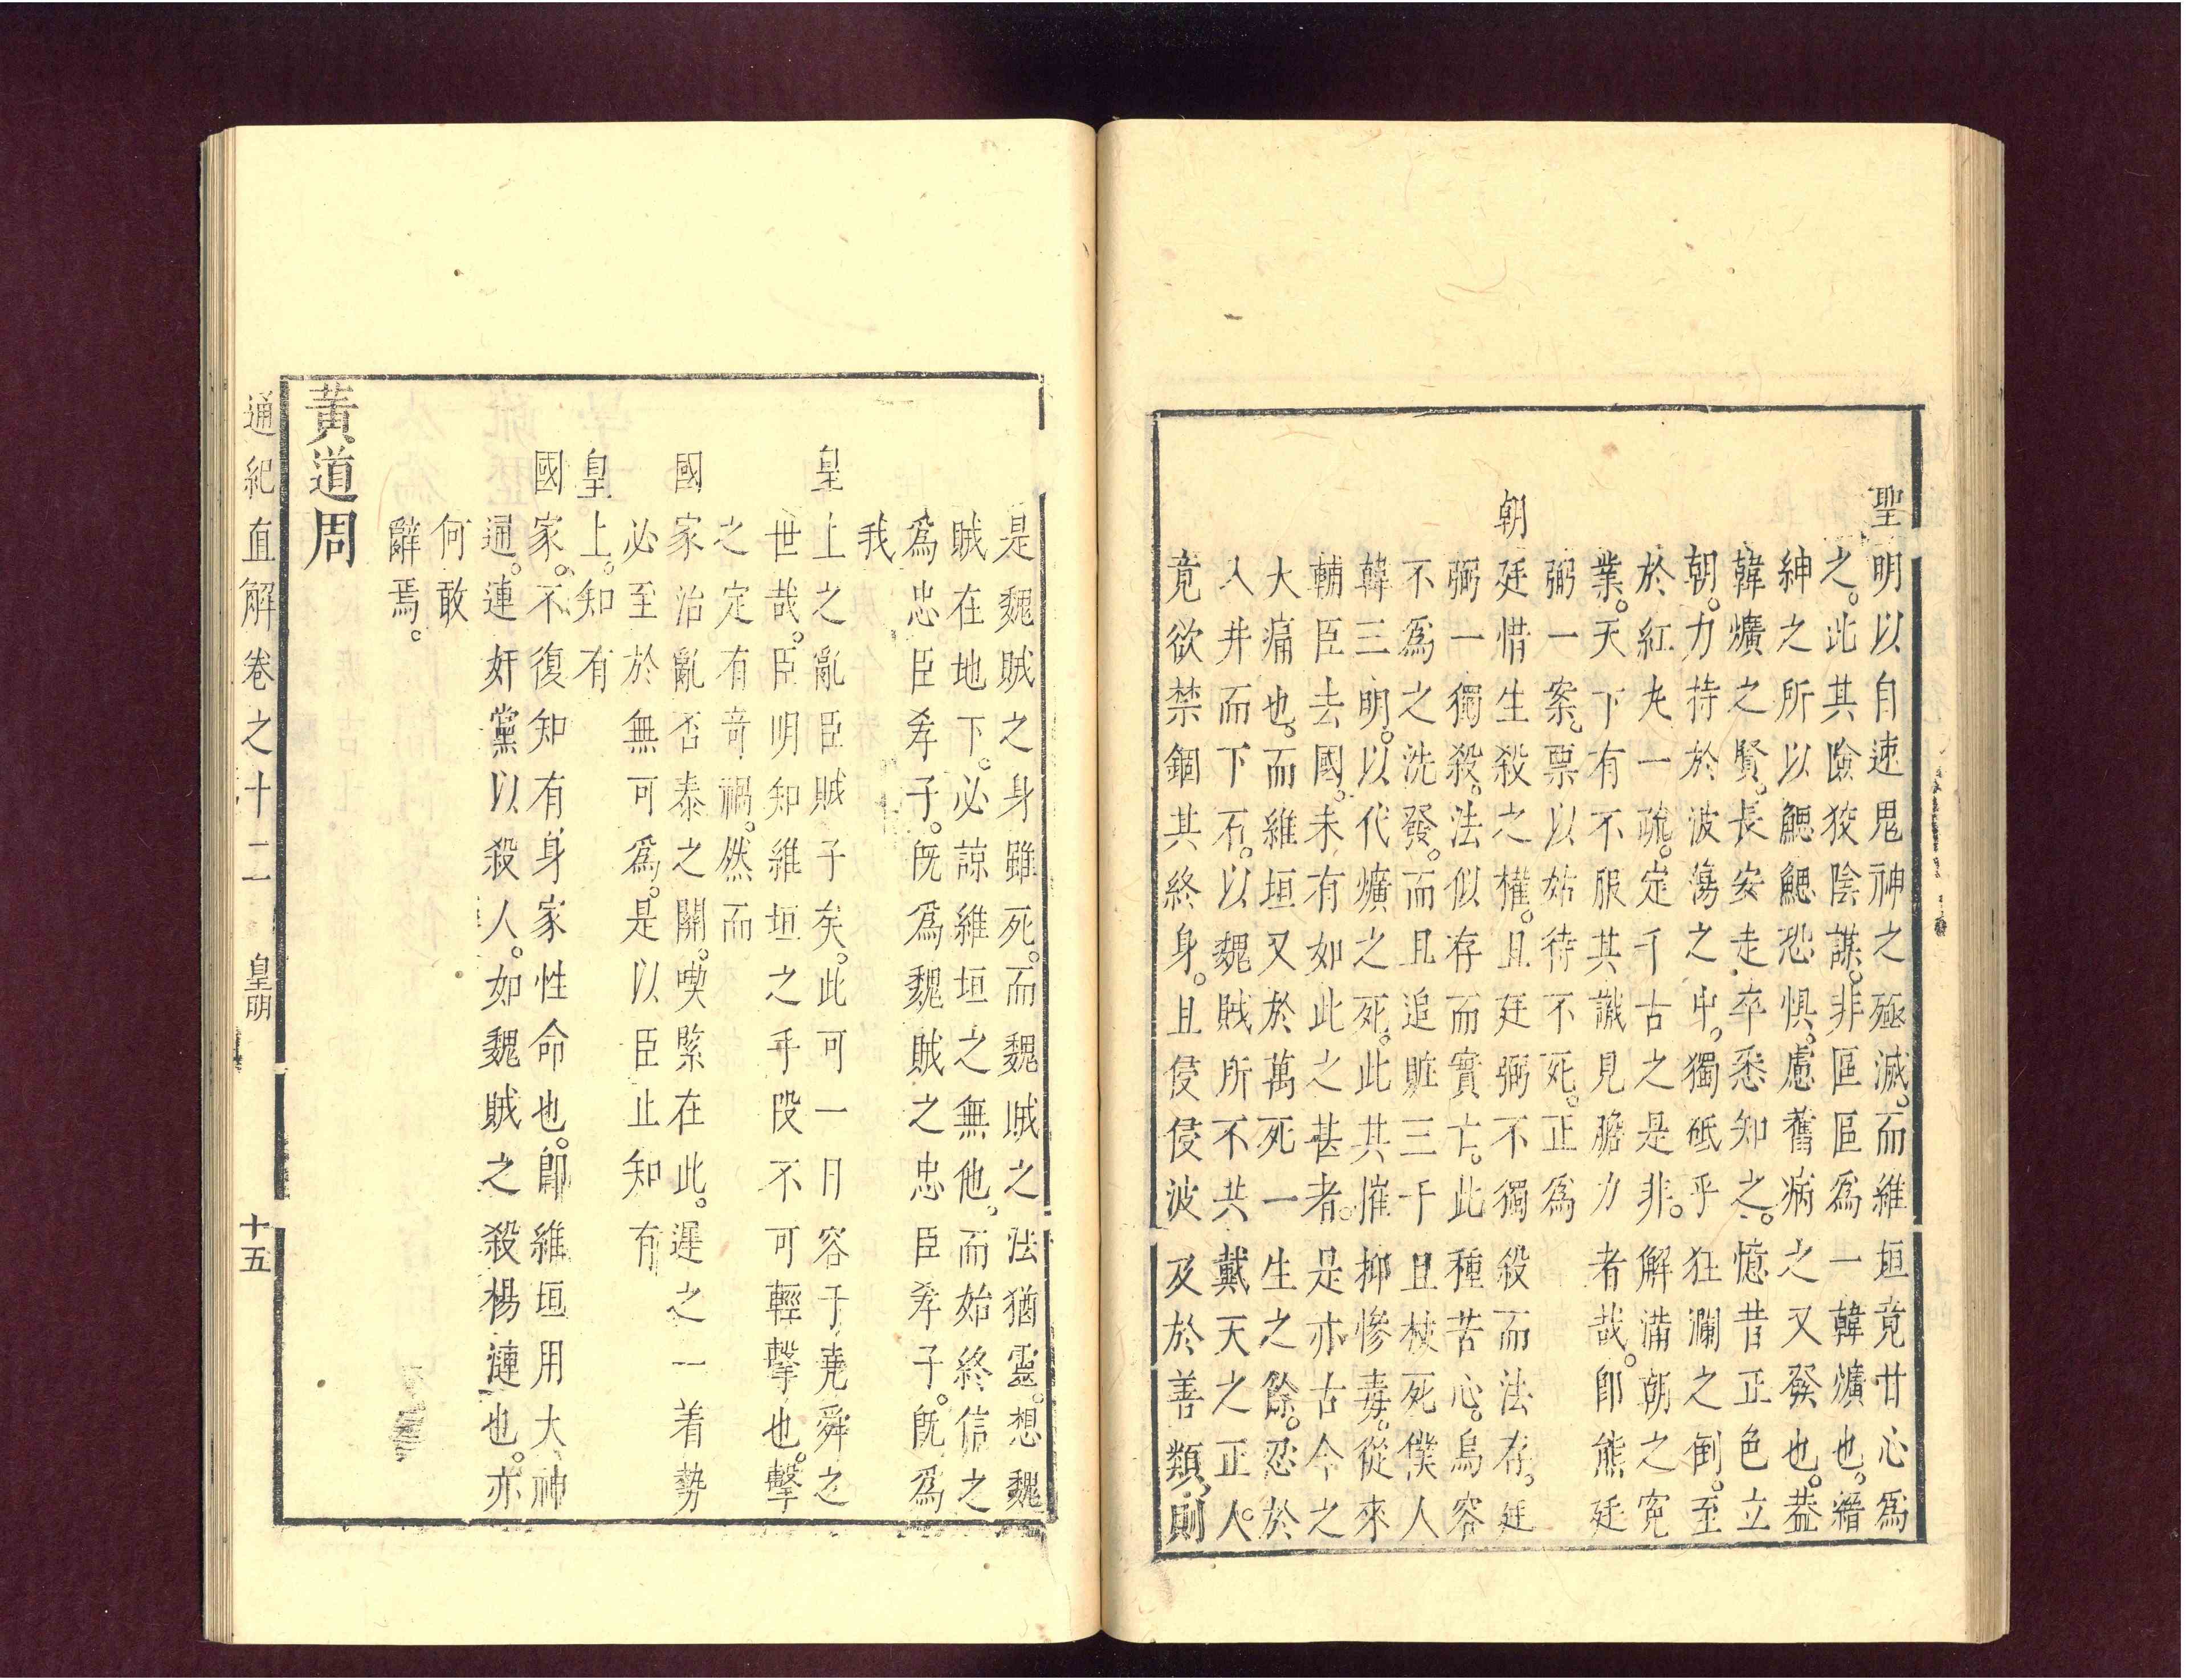 聖明以自速鬼神之殛滅。而維垣竟甘心爲
之。此其險狡陰謀。非區區爲一韓爌也。縉
紳之所以鰓鰓恐懼。慮舊病之又發也。葢
韓爌之賢。長安走卒悉知之。憶昔正色立
朝。力持於波蕩之中。獨砥乎狂瀾之倒。至
於紅丸一疏。定千古之是非。解滿朝之寃
業。天下有不服其識見膽力者哉。卽熊廷
弼一案。票以姑待不死。正爲
朝廷惜生殺之權。且廷弼不獨殺而法存。廷
弼一獨殺。法似存而實亡。此種苦心。烏容
不爲之洗發。而且追贓三千且杖死僕人
韓三明。以代爌之死。此其摧抑慘毒。從來
輔臣去國。未有如此之甚者。是亦古今之
大痛也。而維垣又於萬死一生之餘。忍於
入井而下石。以魏賊所不共戴天之正人。
竟欲禁錮其終身。且侵侵波及於善類。則
是魏賊之身雖死。而魏賊之法猶靈。想魏
賊在地下。必諒維垣之無他。而始終信之
爲忠臣孝子。旣爲魏賊之忠臣孝子。旣爲
我
皇上之亂臣賊子矣。此可一日容于堯舜之
世哉。臣明知維垣之手段不可輕擊也。擊
之定有奇禍。然而
國家治亂否泰之關。喫緊在此。遲之一着勢
必至於無可爲。是以臣止知有
皇上。知有
國家。不復知有身家性命也。卽維垣用大神
通。連奸黨以殺人。如魏賊之殺楊漣也。亦
何敢
辭焉。
黃道周
通紀直解卷之十二 皇明 十五